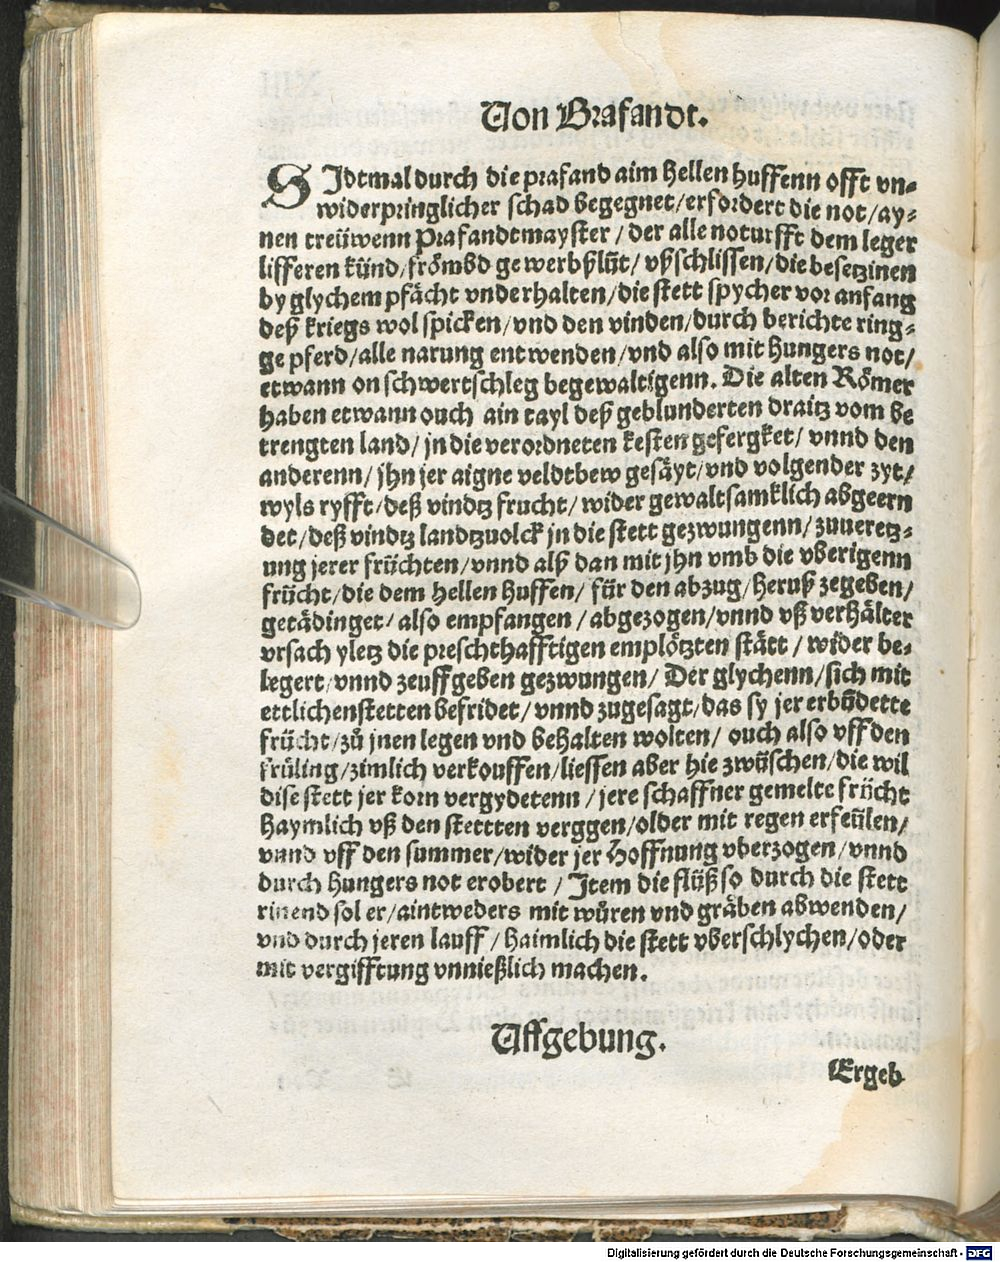 Von Brafandt.
SJdtmal durch die prafand aim hellen huffenn offt vn-
widerpringlicher schad begegnet/erfordert die not/ay-
nen treüwenn Prafandtmayster/der alle noturfft dem leger
lifferen künd/frömbd gewerbßlüt/vßschlissen/die besetzinen
by glychem pfächt vnderhalten/die stett spycher vor anfang
deß kriegs wol spicken/vnd den vinden/durch berichte ring-
ge pferd/alle narung entwenden/vnd also mit hungers not/
etwann on schwertschleg begewaltigenn. Die alten Römer
haben etwann ouch ain tayl deß geblunderten draitz vom be
trengten land/jn die verordneten kesten gefergket/vnnd den
anderenn/jhn jer aigne veldtbew gesäyt/vnd volgender zyt/
wyls ryfft/deß vindtz frucht/wider gewaltsamklich abgeern
det/deß vindtz landtzuolck jn die stett gezwungenn/zuueretz-
ung jerer früchten/vnnd alß dan mit jhn vmb die vberigenn
frücht/die dem hellen huffen/für den abzug/heruß zegeben/
getädinget/also empfangen/abgezogen/vnnd vß verhälter
vrsach yletz die preschthafftigen emplötzten stätt/wider be-
legert/vnnd zeuffgeben gezwungen/Der glychenn/sich mit
ettlichenstetten befridet/vnnd zugesagt/das sy jer erbüdette
frücht/zů jnen legen vnd behalten wolten/ouch also vff den
früling/zimlich verkouffen/liessen aber hie zwüschen/die wil
dise stett jer korn vergydetenn/jere schaffner gemelte frücht
haymlich vß den stettten verggen/older mit regen erfeülen/
vnnd vff den summer/wider jer hoffnung vberzogen/vnnd
durch hungers not erobert/Jtem die flüß so durch die stett
rinend sol er/aintweders mit wůren vnd gräben abwenden/
vnd durch jeren lauff/haimlich die stett vberschlychen/oder
mit vergifftung vnnießlich machen.
Vffgebung.
Ergeb
Digitalisierung gefördert durch die Deutsche Forschungsgemeinschaft - DFG